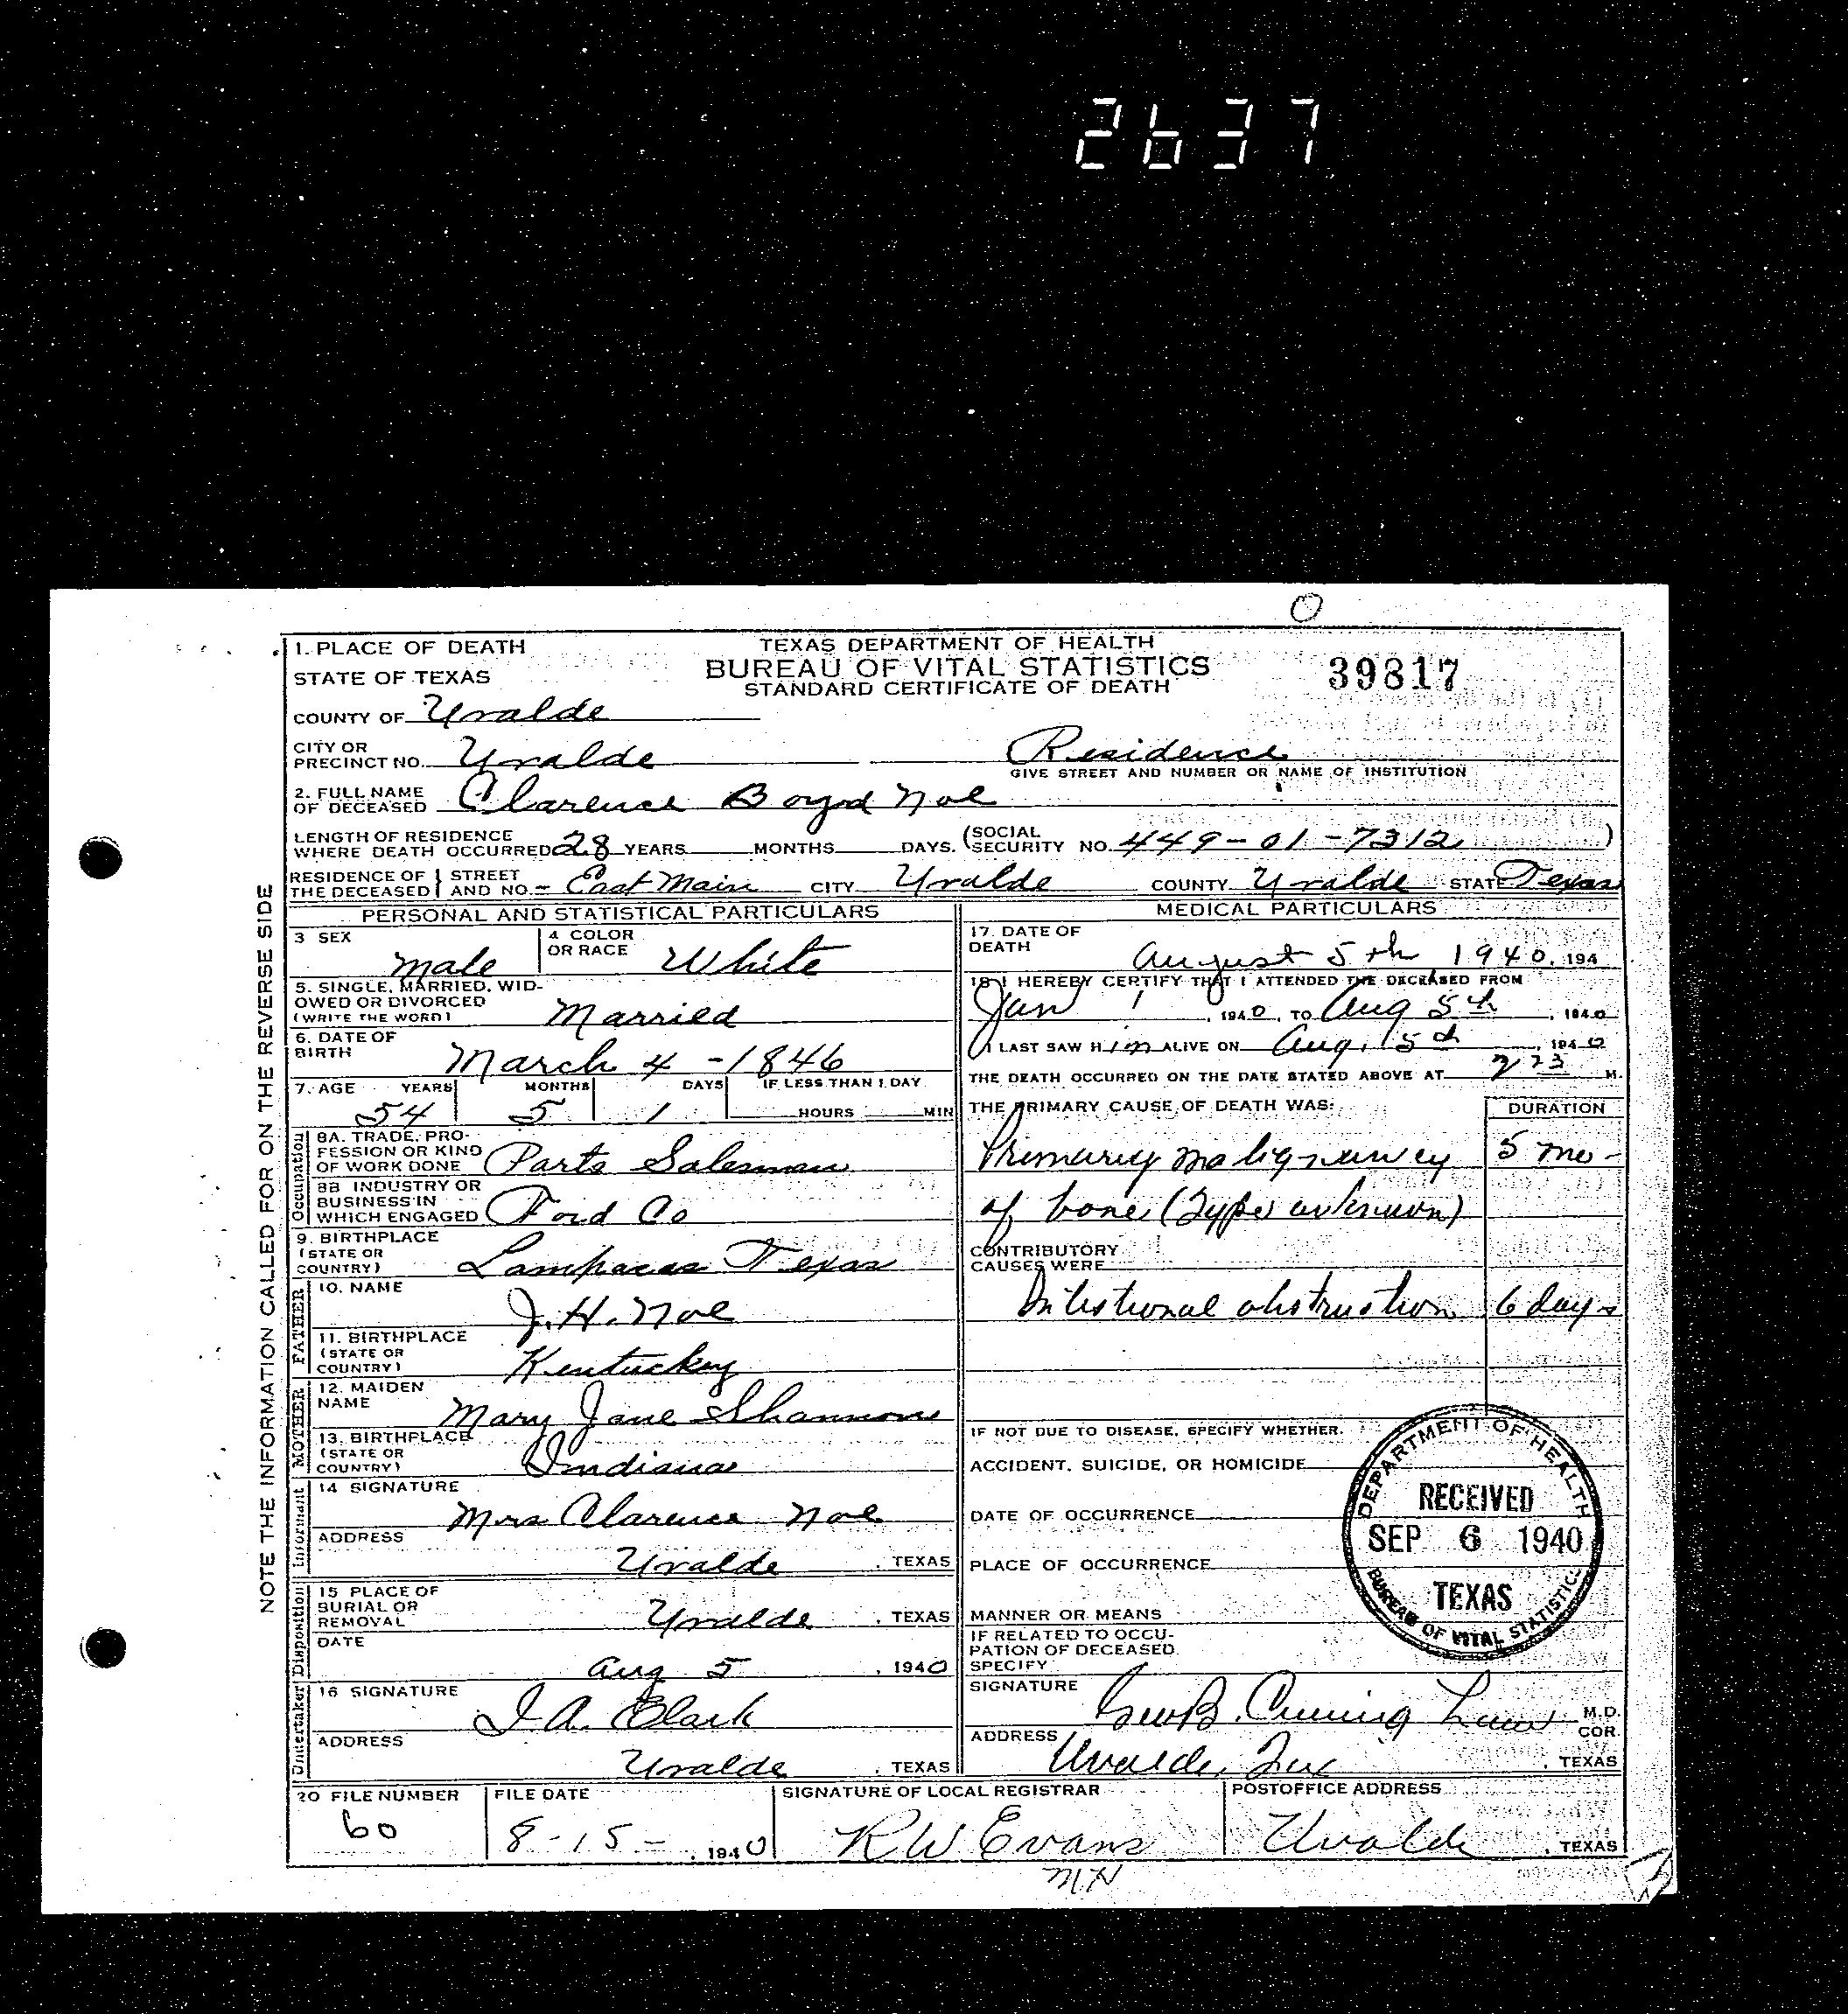 2637
1. PLACE OF DEATH
STATE OF TEXAS
TEXAS DEPARTMENT OF HEALTH
BUREAU OF VITAL STATISTICS
STANDARD CERTIFICATE OF DEATH
39817
COUNTY OF Uvalde
CITY OR PRECINCT NO. Uvalde
Residence
GIVE STREET AND NUMBER OR NAME OF INSTITUTION
2. FULL NAME OF DECEASED Clarence Boyd Noe
LENGTH OF RESIDENCE WHERE DEATH OCCURRED 28 YEARS MONTHS DAYS. (SOCIAL SECURITY NO. 449-01-7312)
RESIDENCE OF THE DECEASED STREET AND NO. - East Main CITY Uvalde COUNTY Uvalde STATE Texas
NOTE THE INFORMATION CALLED FOR ON THE REVERSE SIDE
PERSONAL AND STATISTICAL PARTICULARS
3 SEX Male
4 COLOR OR RACE White
5. SINGLE, MARRIED, WIDOWED OR DIVORCED (WRITE THE WORD) Married
6. DATE OF BIRTH March 4 - 1846
7. AGE YEARS MONTHS DAYS IF LESS THAN 1 DAY
54 5 1 HOURS MIN
Occupation
8A. TRADE, PROFESSION OR KIND OF WORK DONE Parts Salesman
8B INDUSTRY OR BUSINESS IN WHICH ENGAGED Ford Co
9. BIRTHPLACE (STATE OR COUNTRY) Lampasas Texas
FATHER
10. NAME J. H. Noe
11. BIRTHPLACE (STATE OR COUNTRY) Kentucky
MOTHER
12. MAIDEN NAME Mary Jane Shannon
13. BIRTHPLACE (STATE OR COUNTRY) Indiana
Informant
14 SIGNATURE Mrs Clarence Noe
ADDRESS Uvalde, TEXAS
Disposition
15 PLACE OF BURIAL OR REMOVAL Uvalde, TEXAS
DATE Aug 5, 1940
Undertaker
16 SIGNATURE J A. Clark
ADDRESS Uvalde, TEXAS
MEDICAL PARTICULARS
17. DATE OF DEATH August 5th 1940, 194
18 I HEREBY CERTIFY THAT I ATTENDED THE DECEASED FROM
Jan 1, 1940, TO Aug 5th, 1940
I LAST SAW HIM ALIVE ON Aug. 5th, 1940
THE DEATH OCCURRED ON THE DATE STATED ABOVE AT M.
THE PRIMARY CAUSE OF DEATH WAS: DURATION
Primary malignancy 5 mo-
of bone (Type unknown)
CONTRIBUTORY CAUSES WERE
Intestional obstruction 6 days
IF NOT DUE TO DISEASE, SPECIFY WHETHER.
ACCIDENT, SUICIDE, OR HOMICIDE
DATE OF OCCURRENCE
PLACE OF OCCURRENCE
MANNER OR MEANS
IF RELATED TO OCCUPATION OF DECEASED SPECIFY
SIGNATURE Geo B. M.D. COR.
ADDRESS Uvalde, Tex, TEXAS
DEPARTMENT OF HEALTH
RECEIVED
SEP 6 1940
TEXAS
BUREAU OF VITAL STATISTIC
20 FILE NUMBER 60
FILE DATE 8-15-, 1940
SIGNATURE OF LOCAL REGISTRAR RW Evans
POSTOFFICE ADDRESS Uvalde, TEXAS